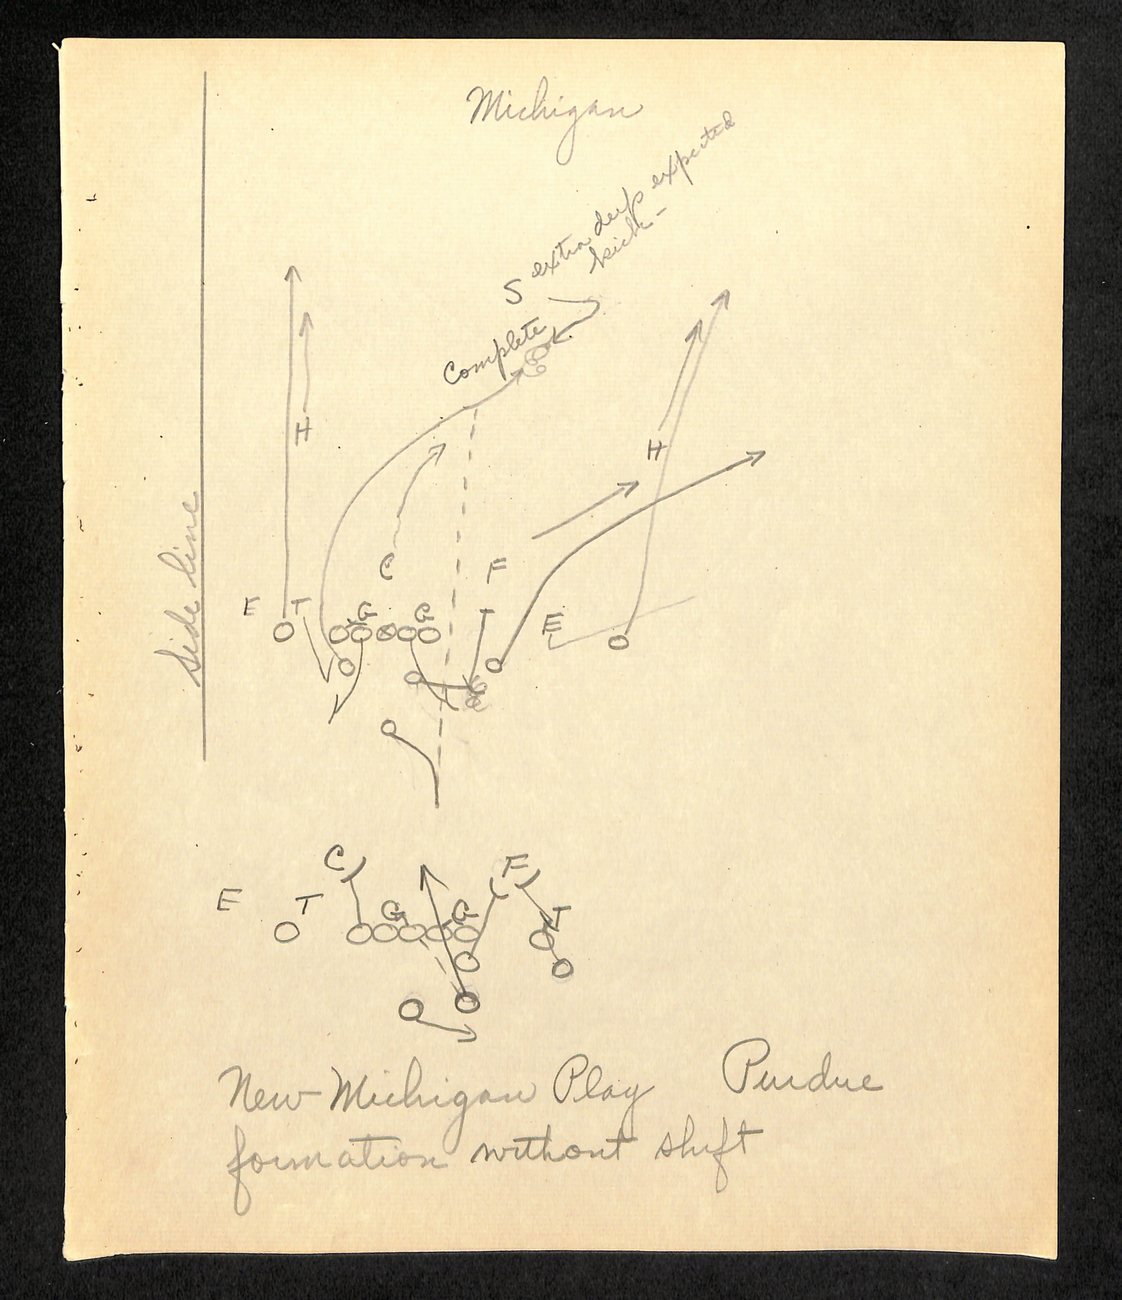 Michigan
S extra deep expected
kick-
Complete
H
H
Side line
C F
E T G G T E
C F
E T G G T
New Michigan Play Purdue
formation without shift